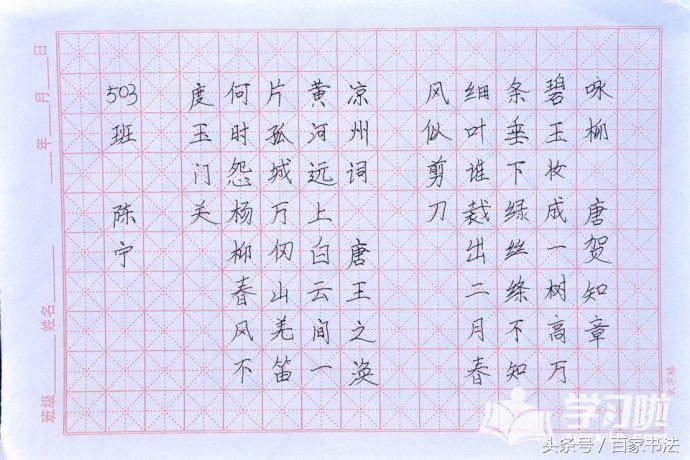 咏柳 唐贺知章
碧玉妆成一树高万
条垂下绿丝绦不知
细叶谁裁出二月春
风似剪刀
凉州词 唐王之涣
黄河远上白云间一
片孤城万仞山羌笛
何时怨杨柳春风不
度玉门关
503班 陈宁
班级 姓名 年 月 日
米字格
学习啦
头条号 / 百家书法